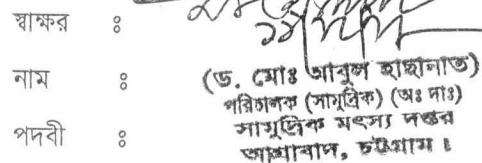 স্বাক্ষর ঃ
নাম ঃ (ড. মোঃ আবুল হাছানাত)
পরিচালক (সামুদ্রিক) (অঃ দাঃ)
পদবী ঃ সামুদ্রিক মৎস্য দপ্তর
আগ্রাবাদ, চট্টগ্রাম।